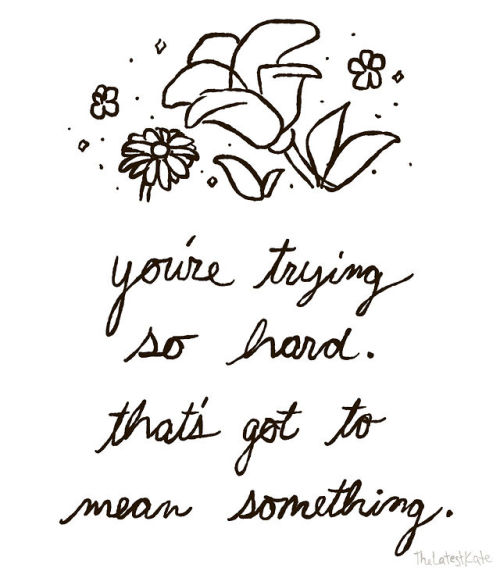 you're trying
so hard.
that's got to
mean something.
TheLatestKate